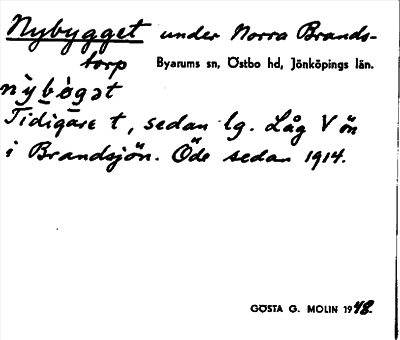 Nybygget under Norra Brands-
torp Byarums sn, Östbo hd, Jönköpings län.
nỳbø̀gət
Tidigare t, sedan lg. Låg V ön
i Brandsjön. Öde sedan 1914.
GÖSTA G. MOLIN 1948.